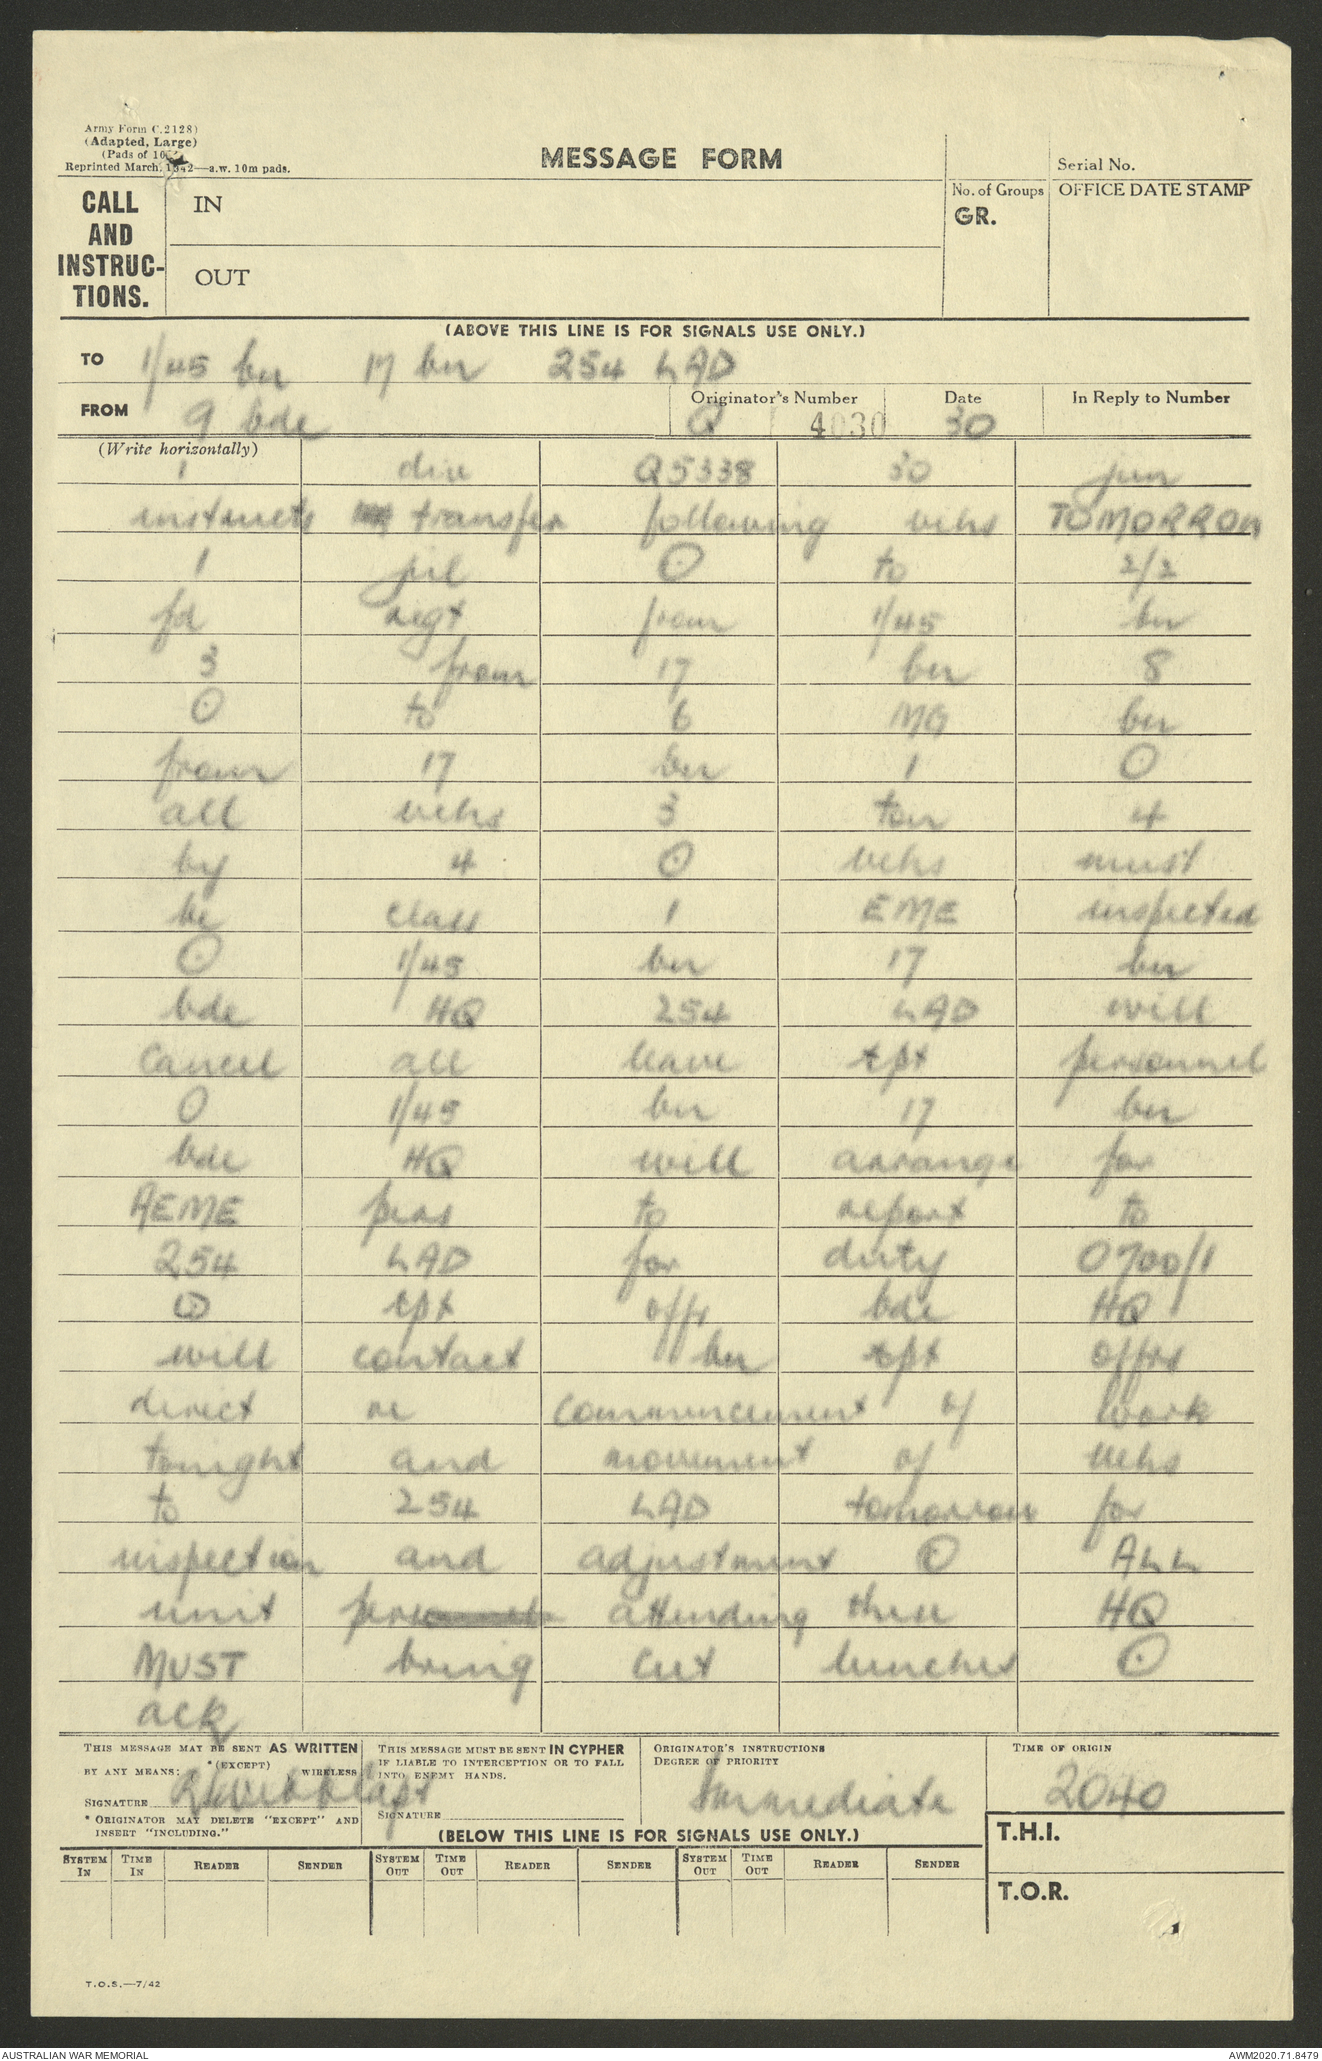 Army Form C.2128)
(Adapted, Large)
(Pads of 10
Reprinted March, 1942—a.w. 10m pads.
MESSAGE FORM
Serial No.
CALL AND INSTRUC-TIONS.
IN
OUT
No. of Groups
GR.
OFFICE DATE STAMP
(ABOVE THIS LINE IS FOR SIGNALS USE ONLY.)
TO 1/45 bn 17 bn 254 LAD
FROM 9 bde
Originator's Number Q 4030
Date 30
In Reply to Number
(Write horizontally)
1 div Q5338 30 jun
instructs transfer following vehs TOMORROW
1 jul ⊙ to 2/2
fd regt from 1/45 bn
3 from 17 bn 8
⊙ to 6 MG bn
from 17 bn 1 ⊙
all vehs 3 ton 4
by 4 ⊙ vehs must
be class 1 EME inspected
⊙ 1/45 bn 17 bn
bde HQ 254 LAD will
cancel all leave tpt personnel
⊙ 1/45 bn 17 bn
bde HQ will arrange for
AEME pers to report to
254 LAD for duty 0700/1
⊙ tpt offr bde HQ
will contact bn tpt offrs
direct re commencement of work
tonight and movement of vehs
to 254 LAD tomorrow for
inspection and adjustment ⊙ ALL
unit pers attending these HQ
MUST bring cut lunches ⊙
ack
THIS MESSAGE MAY BE SENT AS WRITTEN
BY ANY MEANS: *(EXCEPT) WIRELESS
SIGNATURE Capt
* ORIGINATOR MAY DELETE "EXCEPT" AND
INSERT "INCLUDING."
THIS MESSAGE MUST BE SENT IN CYPHER
IF LIABLE TO INTERCEPTION OR TO FALL
INTO ENEMY HANDS.
SIGNATURE
ORIGINATOR'S INSTRUCTIONS
DEGREE OF PRIORITY
Immediate
TIME OF ORIGIN
2040
(BELOW THIS LINE IS FOR SIGNALS USE ONLY.)
T.H.I.
T.O.R.
SYSTEM IN TIME IN READER SENDER SYSTEM OUT TIME OUT READER SENDER SYSTEM OUT TIME OUT READER SENDER
T.O.S.—7/42
AUSTRALIAN WAR MEMORIAL
AWM2020.71.8479